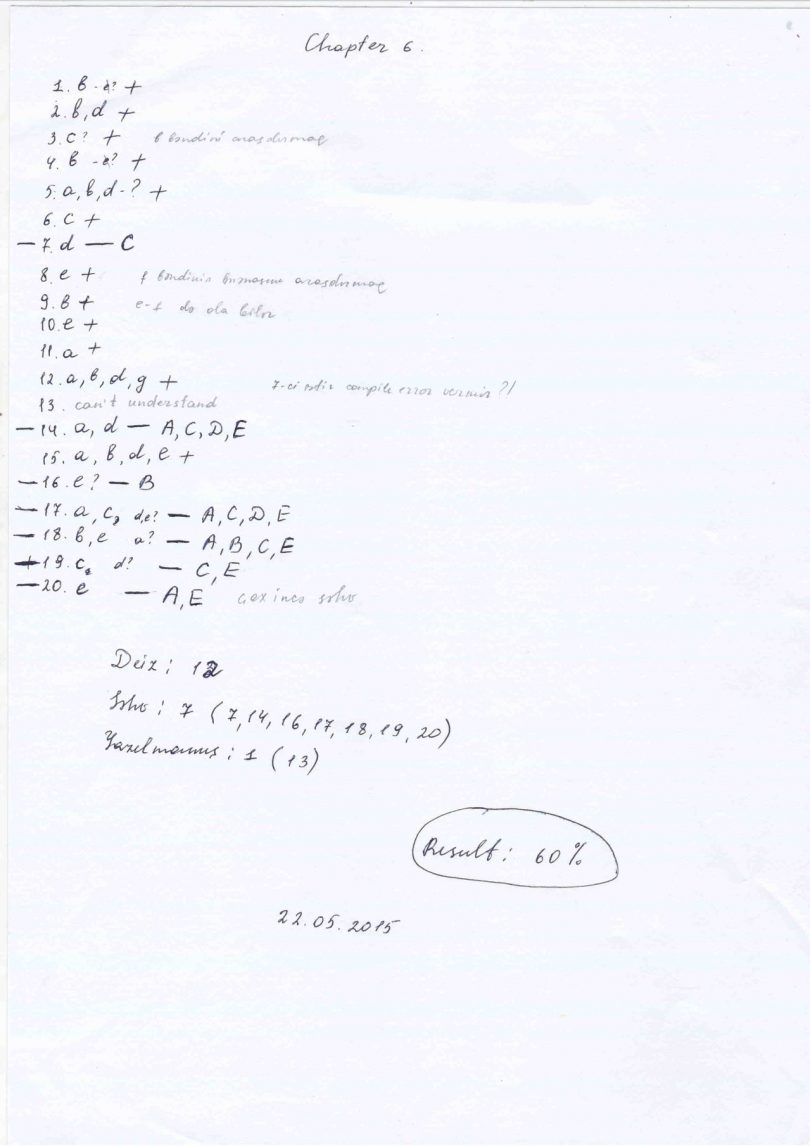 Chapter 6.
1. b - e? +
2. b, d +
3. c? + f bəndini araşdırmaq
4. b - e? +
5. a, b, d - ? +
6. c +
— 7. d — C
8. e + f bəndinin araşdırmaq
9. b + e-f də ola bilər
10. e +
11. a +
12. a, b, d, g + 7-ci sətir compile error vermir?!
13. can't understand
— 14. a, d — A, C, D, E
15. a, b, d, e +
— 16. e? — B
— 17. a, c, d,e? — A, C, D, E
— 18. b, e a? — A, B, C, E
— 19. c, d? — C, E
— 20. e — A, E səhv
Düz : 12
Səhv : 7 (7, 14, 16, 17, 18, 19, 20)
Yazılmamış : 1 (13)
Result : 60%
22.05.2015